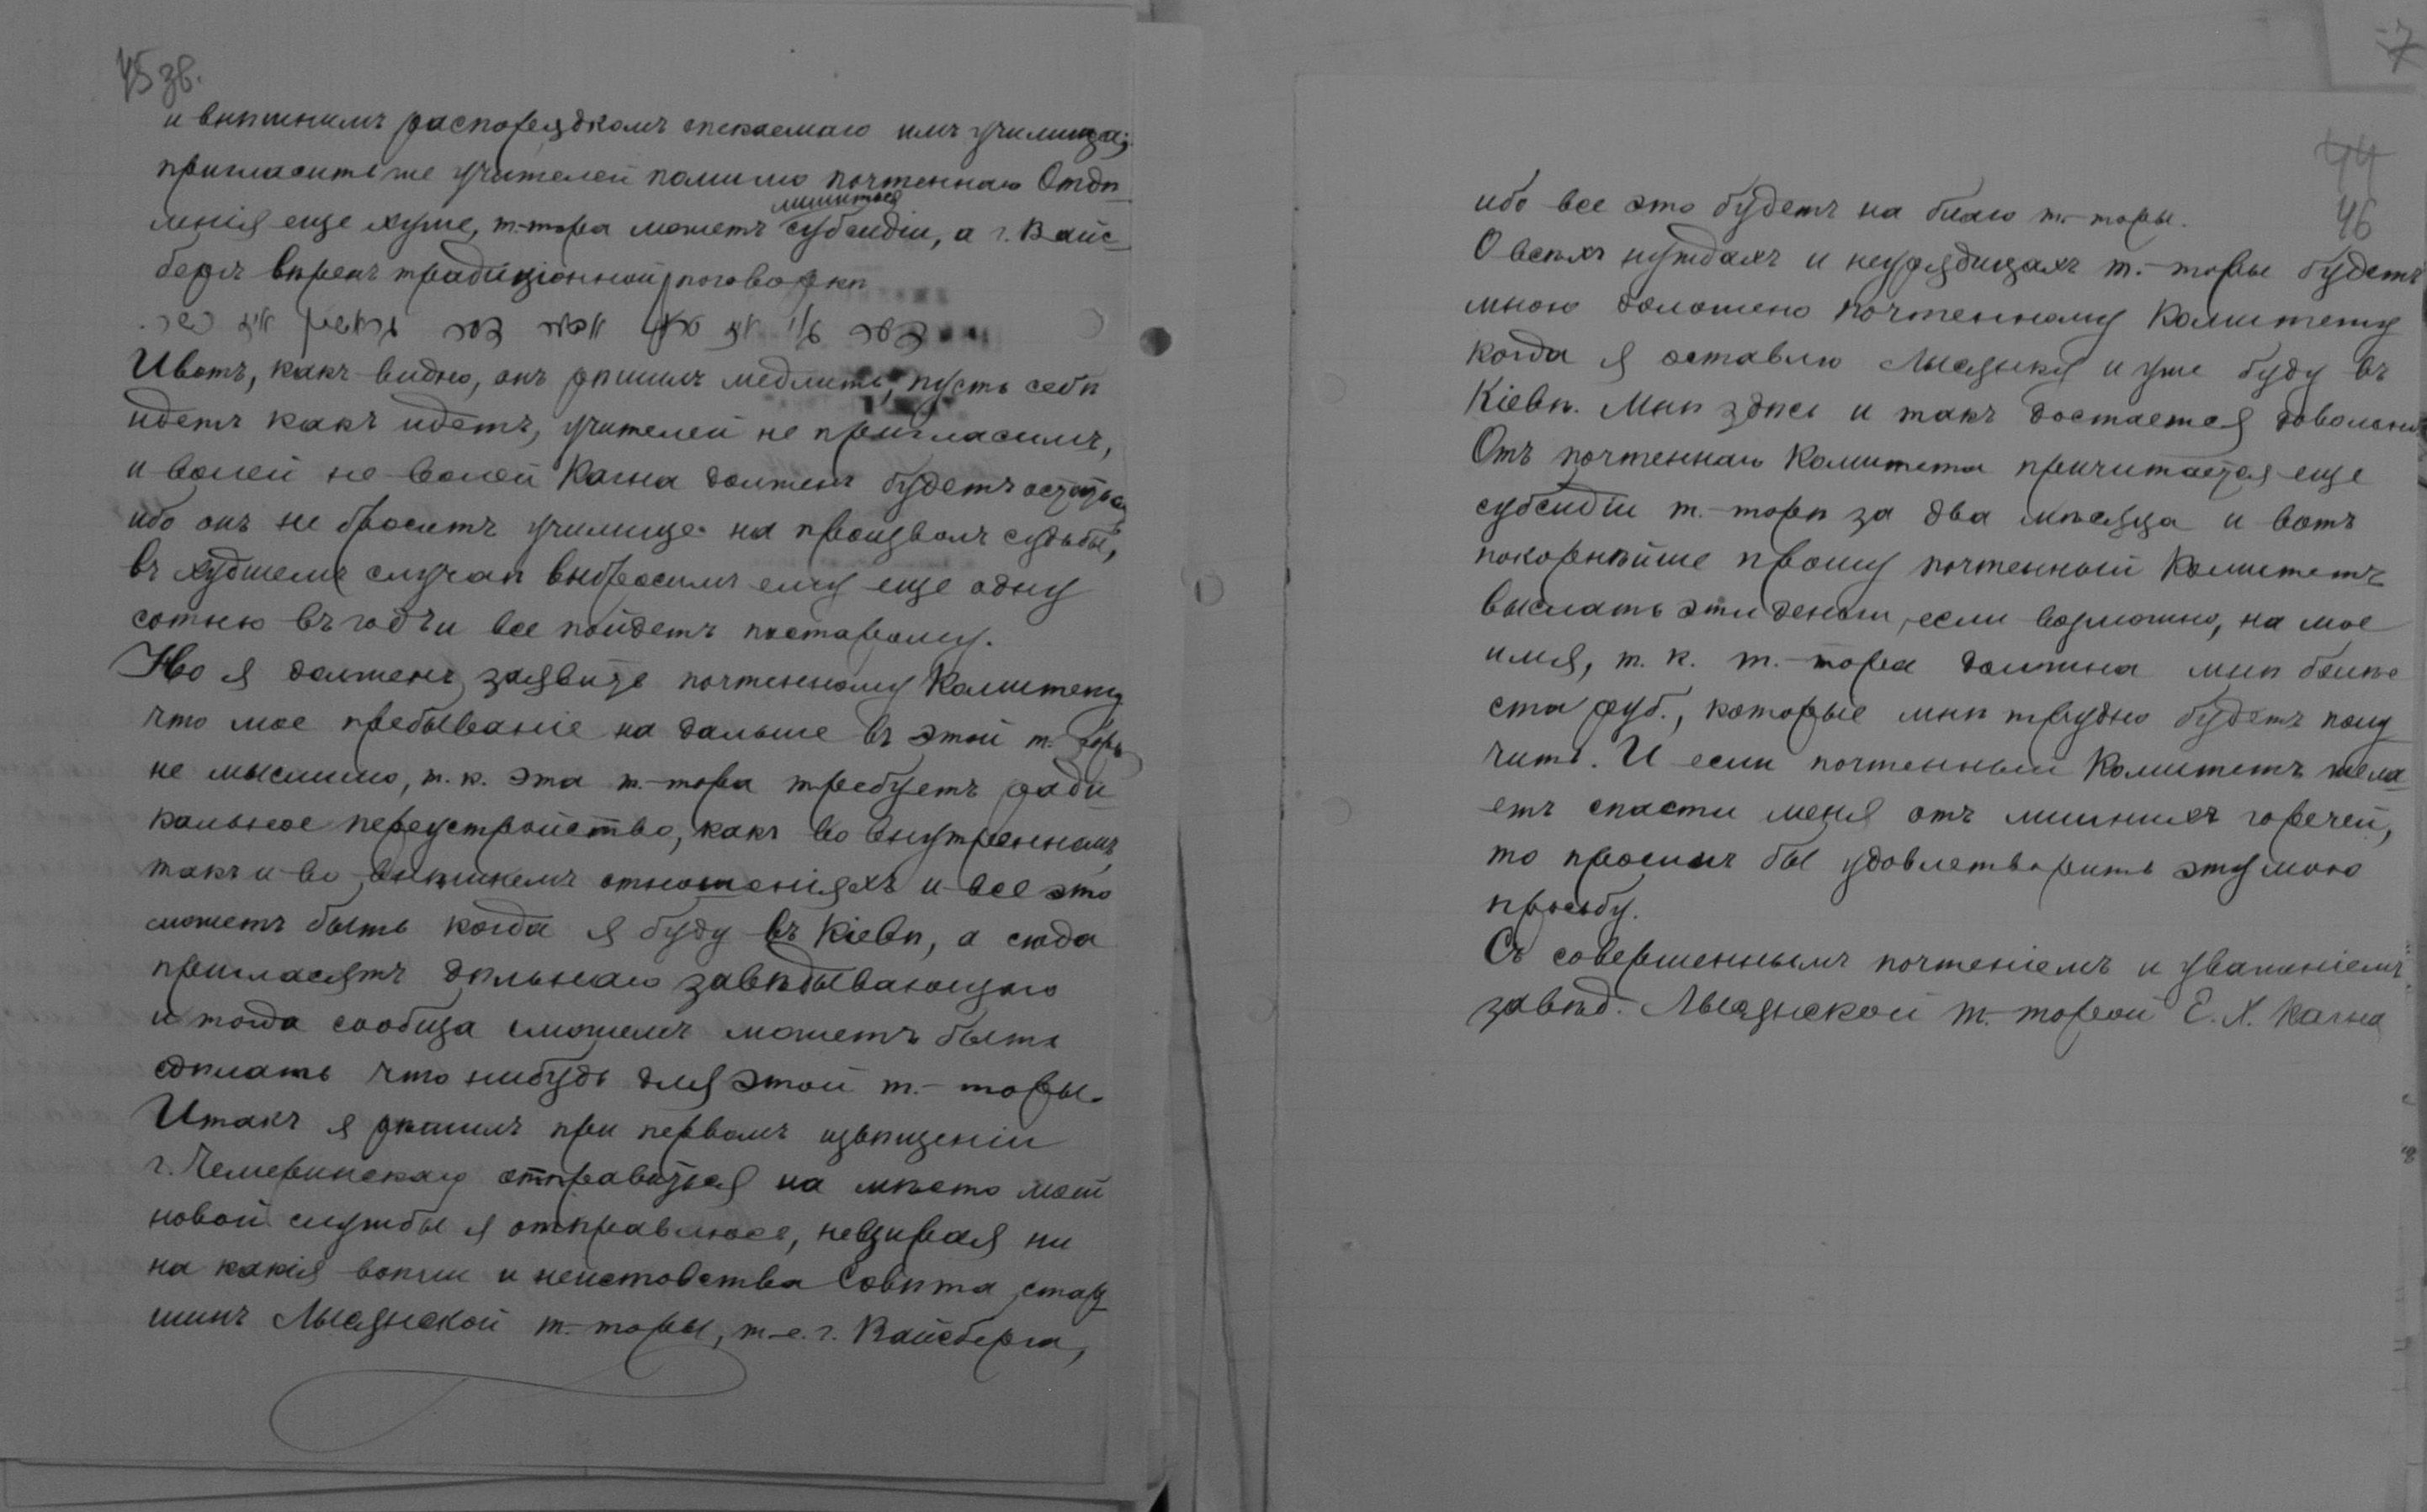 45 зв.
и внѣшнимъ распорядкомъ опекаемаго имъ училища;
пригласить же учителей помимо почтеннаго Отдѣ-
ленія еще хуже, т.-тора можетъ лишиться субсидіи, а г. Вайс-
бергъ вѣренъ традиціонной поговоркѣ
И вотъ, какъ видно, онъ рѣшилъ медлить, пусть себѣ
идетъ какъ идетъ, учителей не пригласилъ,
и волей не волей Кагна долженъ будетъ остаться
ибо онъ не броситъ училище на произволъ судьбы,
въ худшемъ случаѣ выбросимъ ему еще одну
сотню въ годъ и все пойдетъ постарому.
Но я долженъ заявить почтенному Комитету
что мое пребываніе на дальше въ этой т. торѣ
не мыслимо, т. к. эта т.-тора требуетъ ради-
кальное переустройство, какъ во внутреннемъ
такъ и во внѣшнемъ отношеніяхъ и все это
можетъ быть когда я буду въ Кіевѣ, а сюда
пригласятъ дѣльнаго завѣдывающаго
и тогда сообща сможемъ можетъ быть
сдѣлать что нибудь для этой т.-торы.
Итакъ я рѣшилъ при первомъ извѣщеніи
г. Темеринскаго отправиться на мѣсто моей
новой службы я отправлюсь, невзирая ни
на какія вопли и неистовства Совѣта стар-
шинъ Лысянской т.-торы, т.-е. г. Вайсберга,
44
46
ибо все это будетъ на благо т.-торы.
О всѣхъ нуждахъ и неурядицахъ т.-торы будетъ
мною доложено почтенному Комитету
когда я оставлю Лысянку и уже буду въ
Кіевѣ. Мнѣ здѣсь и такъ достается довольно
Отъ почтеннаго Комитета причитается еще
субсидіи т.-торѣ за два мѣсяца и вотъ
покорнѣйше прошу почтенный Комитетъ
выслать эти деньги, если возможно, на мое
имя, т. к. т.-тора должна мнѣ болѣе
ста руб., которые мнѣ трудно будетъ полу-
чить. И если почтенный Комитетъ жела-
етъ спасти меня отъ лишнихъ горечей,
то просилъ бы удовлетворить эту мою
просьбу.
Съ совершеннымъ почтеніемъ и уваженіемъ
завѣд. Лысянской т.-торой Е. Х. Кагна